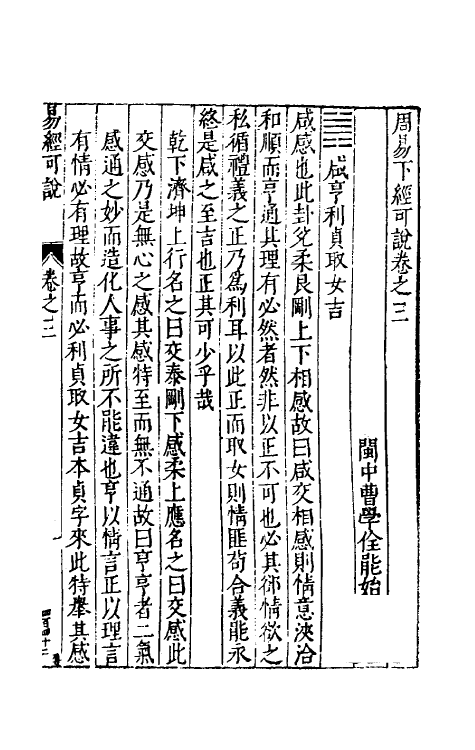 周易下經可說卷之三
閩中曹學佺能始
䷞咸亨利貞取女吉
咸感也此卦兌柔艮剛上下相感故曰咸交相感則情意浹洽
和順而亨通其理有必然者然非以正不可也必其御情欲之
私循禮義之正乃爲利耳以此正而取女則情匪苟合義能永
終是咸之至吉也正其可少乎哉
乾下濟坤上行名之曰交泰剛下感柔上應名之曰交感此
交感乃是無心之感其感特至而無不通故曰亨亨者二氣
感通之妙而造化人事之所不能違也亨以情言正以理言
有情必有理故亨而必利貞取女吉本貞字來此特舉其感
易經可說
卷之三